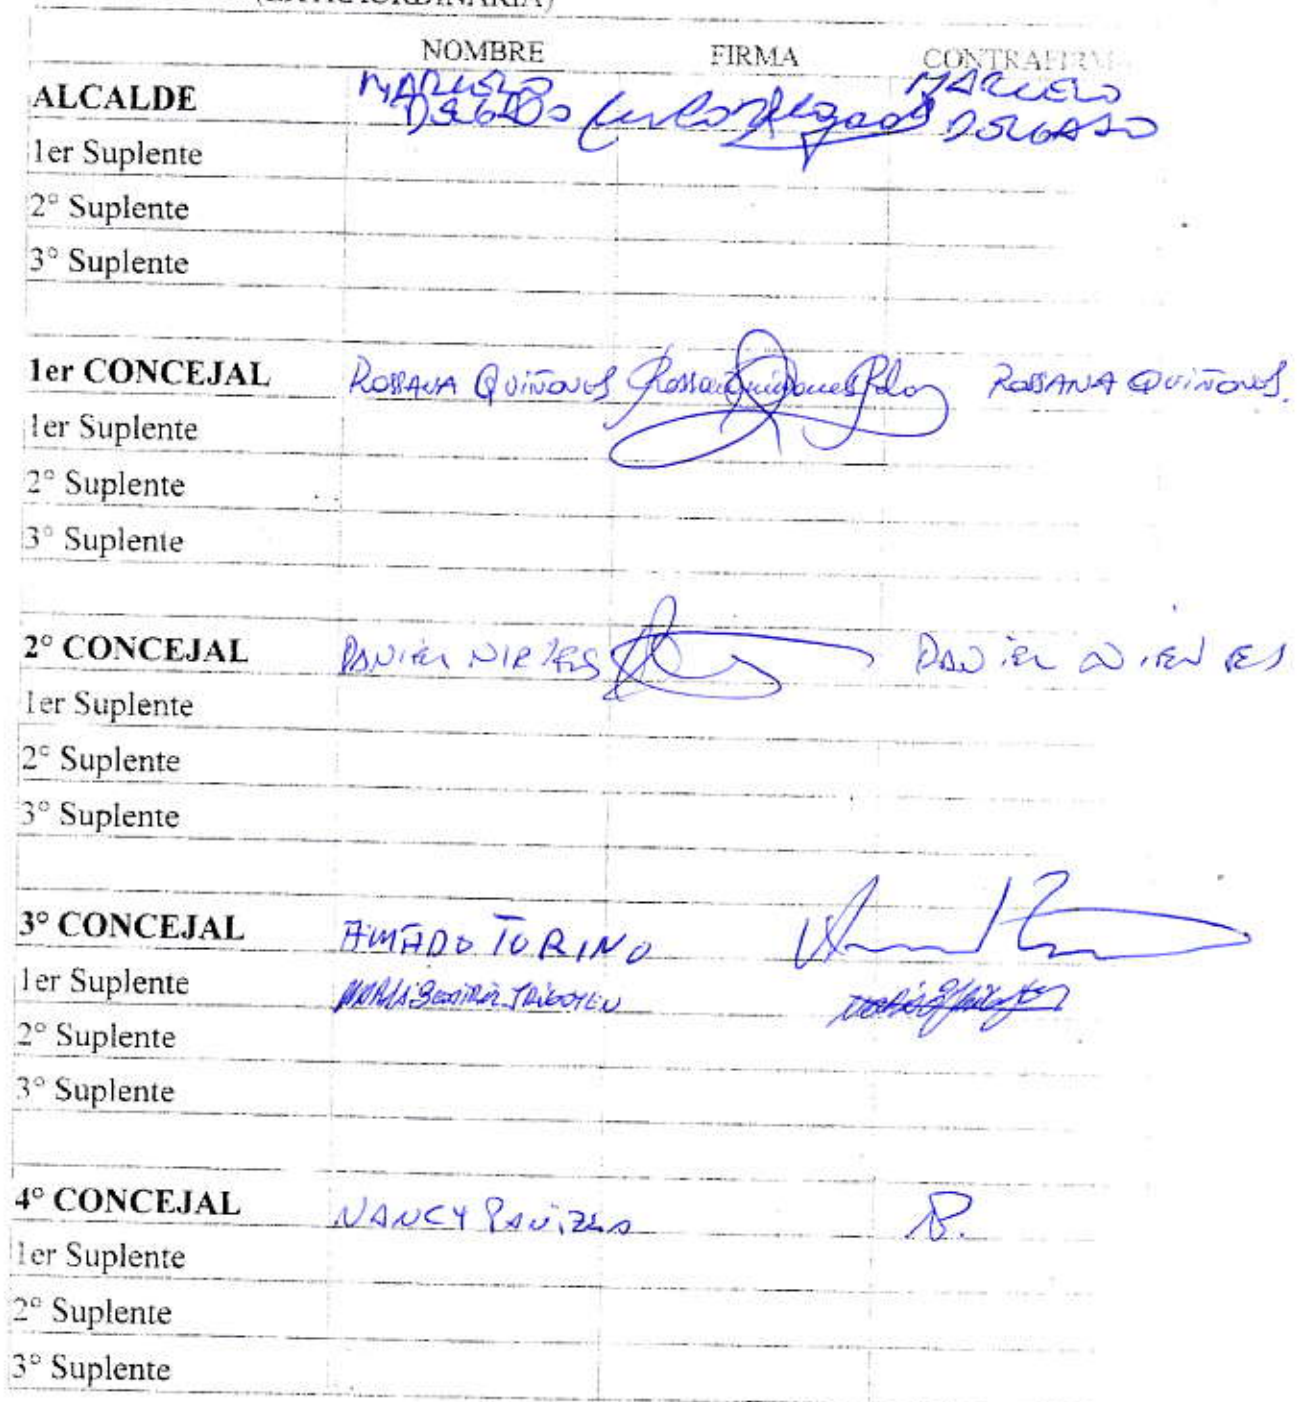 (EXTRAORDINARIA)
NOMBRE FIRMA CONTRAFIRMA
ALCALDE MARCELO DELGADO MARCELO DELGADO
1er Suplente
2° Suplente
3° Suplente
1er CONCEJAL ROSSANA QUIÑONES ROSSANA QUIÑONES.
1er Suplente
2° Suplente
3° Suplente
2° CONCEJAL DANIEL DANIEL
1er Suplente
2° Suplente
3° Suplente
3° CONCEJAL AMADO TORINO
1er Suplente MARIA
2° Suplente
3° Suplente
4° CONCEJAL NANCY
1er Suplente
2° Suplente
3° Suplente